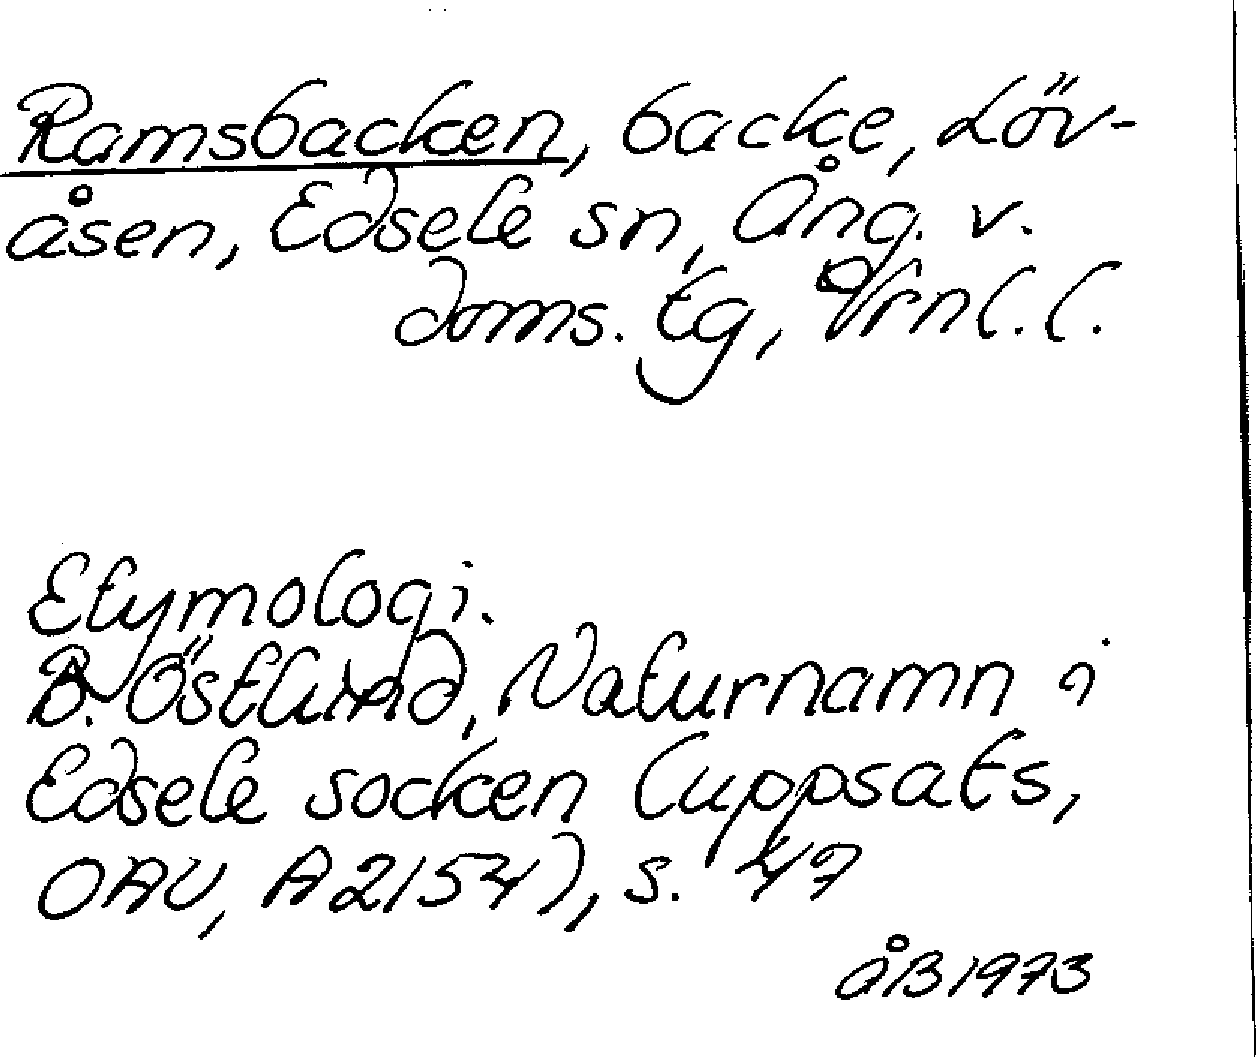 Ramsbacken, backe, Löv-
åsen, Edsele sn, Ång. v.
doms. tg, Vrnl. l.
Etymologi.
B. Östlund, Naturnamn i
Edsele socken (uppsats,
OAU, A 2154), s. 47
ÅB 1973